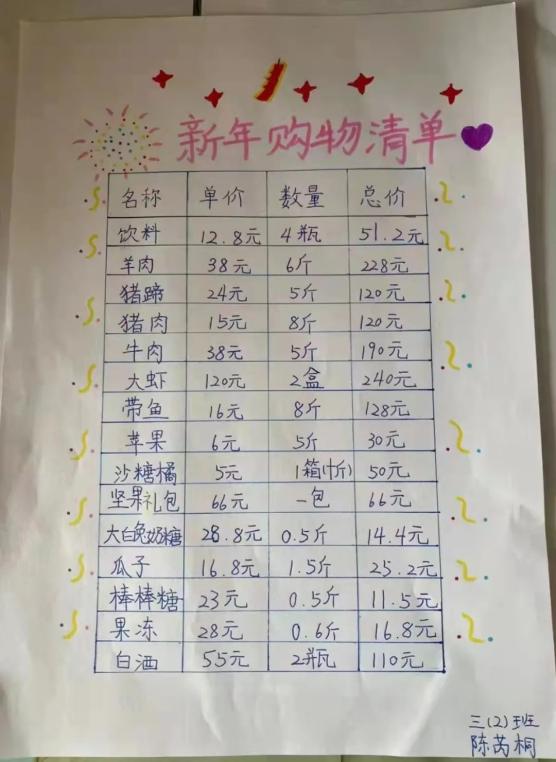 新年购物清单
名称 单价 数量 总价
饮料 12.8元 4瓶 51.2元
羊肉 38元 6斤 228元
猪蹄 24元 5斤 120元
猪肉 15元 8斤 120元
牛肉 38元 5斤 190元
大虾 120元 2盒 240元
带鱼 16元 8斤 128元
苹果 6元 5斤 30元
沙糖橘 5元 1箱(10斤) 50元
坚果礼包 66元 一包 66元
大白兔奶糖 28.8元 0.5斤 14.4元
瓜子 16.8元 1.5斤 25.2元
棒棒糖 23元 0.5斤 11.5元
果冻 28元 0.6斤 16.8元
白酒 55元 2瓶 110元
三(2)班
陈芮桐